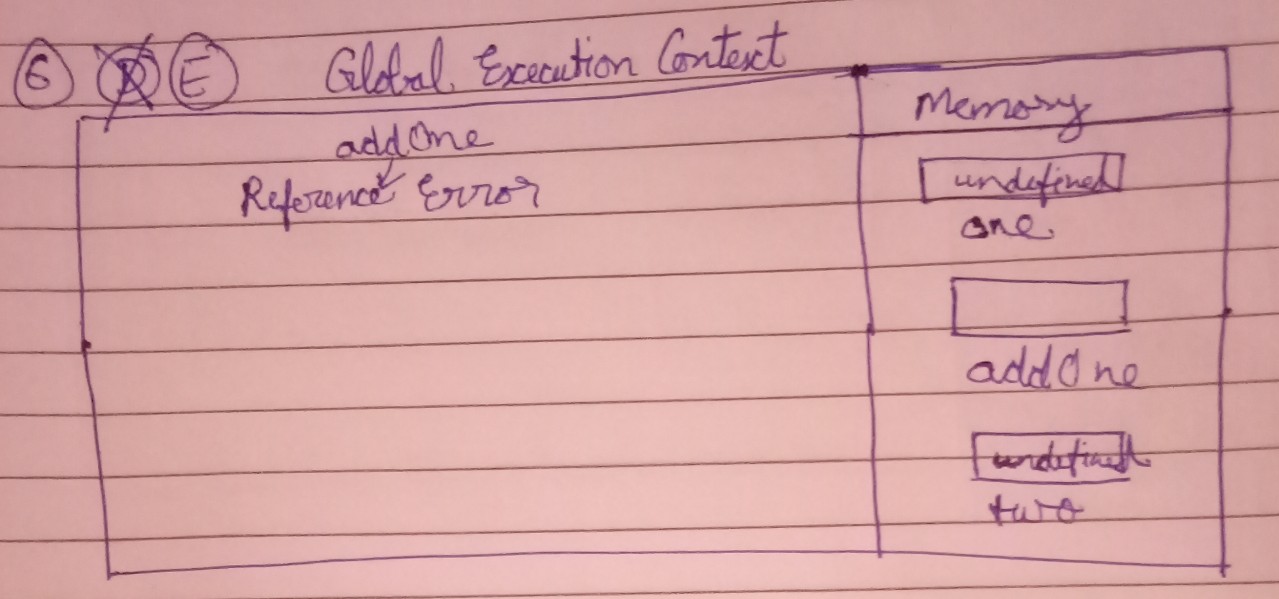 6 R E Global Execution Context
Memory
addOne
Reference Error
undefined
one
addOne
undefined
two